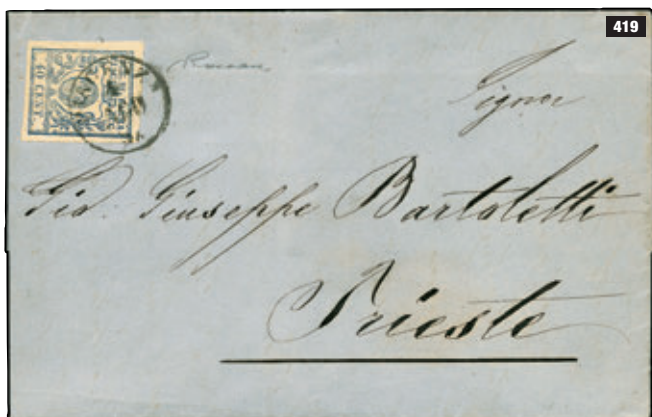 419
40 CENT.
Signor
Gio: Giuseppe Bartoletti
Trieste